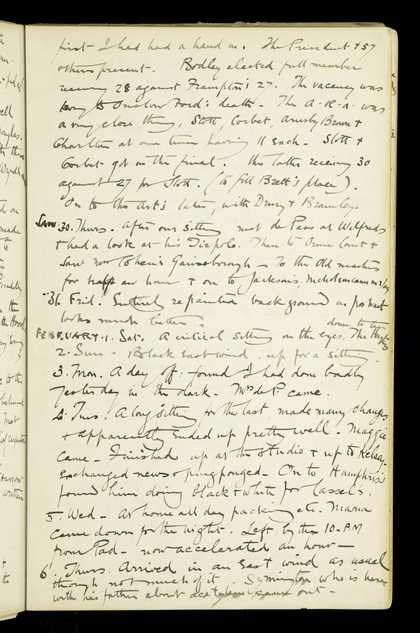 first I had had a hand in. The President & 57
others present. Bodley elected full member
receiving 28 against Frampton's 27. The vacancy was
owing to Onslow Ford's death - The A-R-A- was
a very close thing, Stott, Corbet, Arnesby Brown &
Charlton at one time having 11 each. Stott &
Corbet got in the final. the latter receiving 30
against 27 for Stott. (to fill Brett's place).
On to the Arts later, with Drury & Bramley
JAN 30. Thurs. After our sitting met de Pass at Wilfred's
& had a look at his Tiepolo. Then to Orme Court &
saw now Cohen's Gainsborough - To the Old masters
for half an hour & on to Jackson's.
" 31. Frid. Sutherl repainted background in portrait
looks much better.
FEBRUARY. 1. Sat. A critical sitting on the eyes. down to
2. Sun - Black east wind. up for a sitting
3. Mon. A day off. found I had done badly
yesterday in the dark. Mrs de P. came.
4. Tues. A long sitting, for the last made many changes
& apparently ended up pretty well. Maggie
came - Finished up at the Studio & up to Kelsay.
exchanged news & pingponged - On to Humphris
found him doing black & white for Cassels.
5 - Wed - At home all day packing etc. Maria
came down for the night. Left by the 10-P.M
from Pad - now accelerated an hour -
6. Thurs. Arrived in an East wind as usual
through not much of it. Symington who is here
with his father about out -